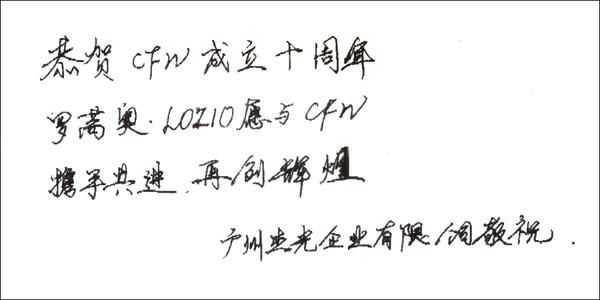 恭贺CFW成立十周年
罗蒿奥·LOZIO愿与CFW
携手共进,再创辉煌
广州杰光企业有限公司敬祝.